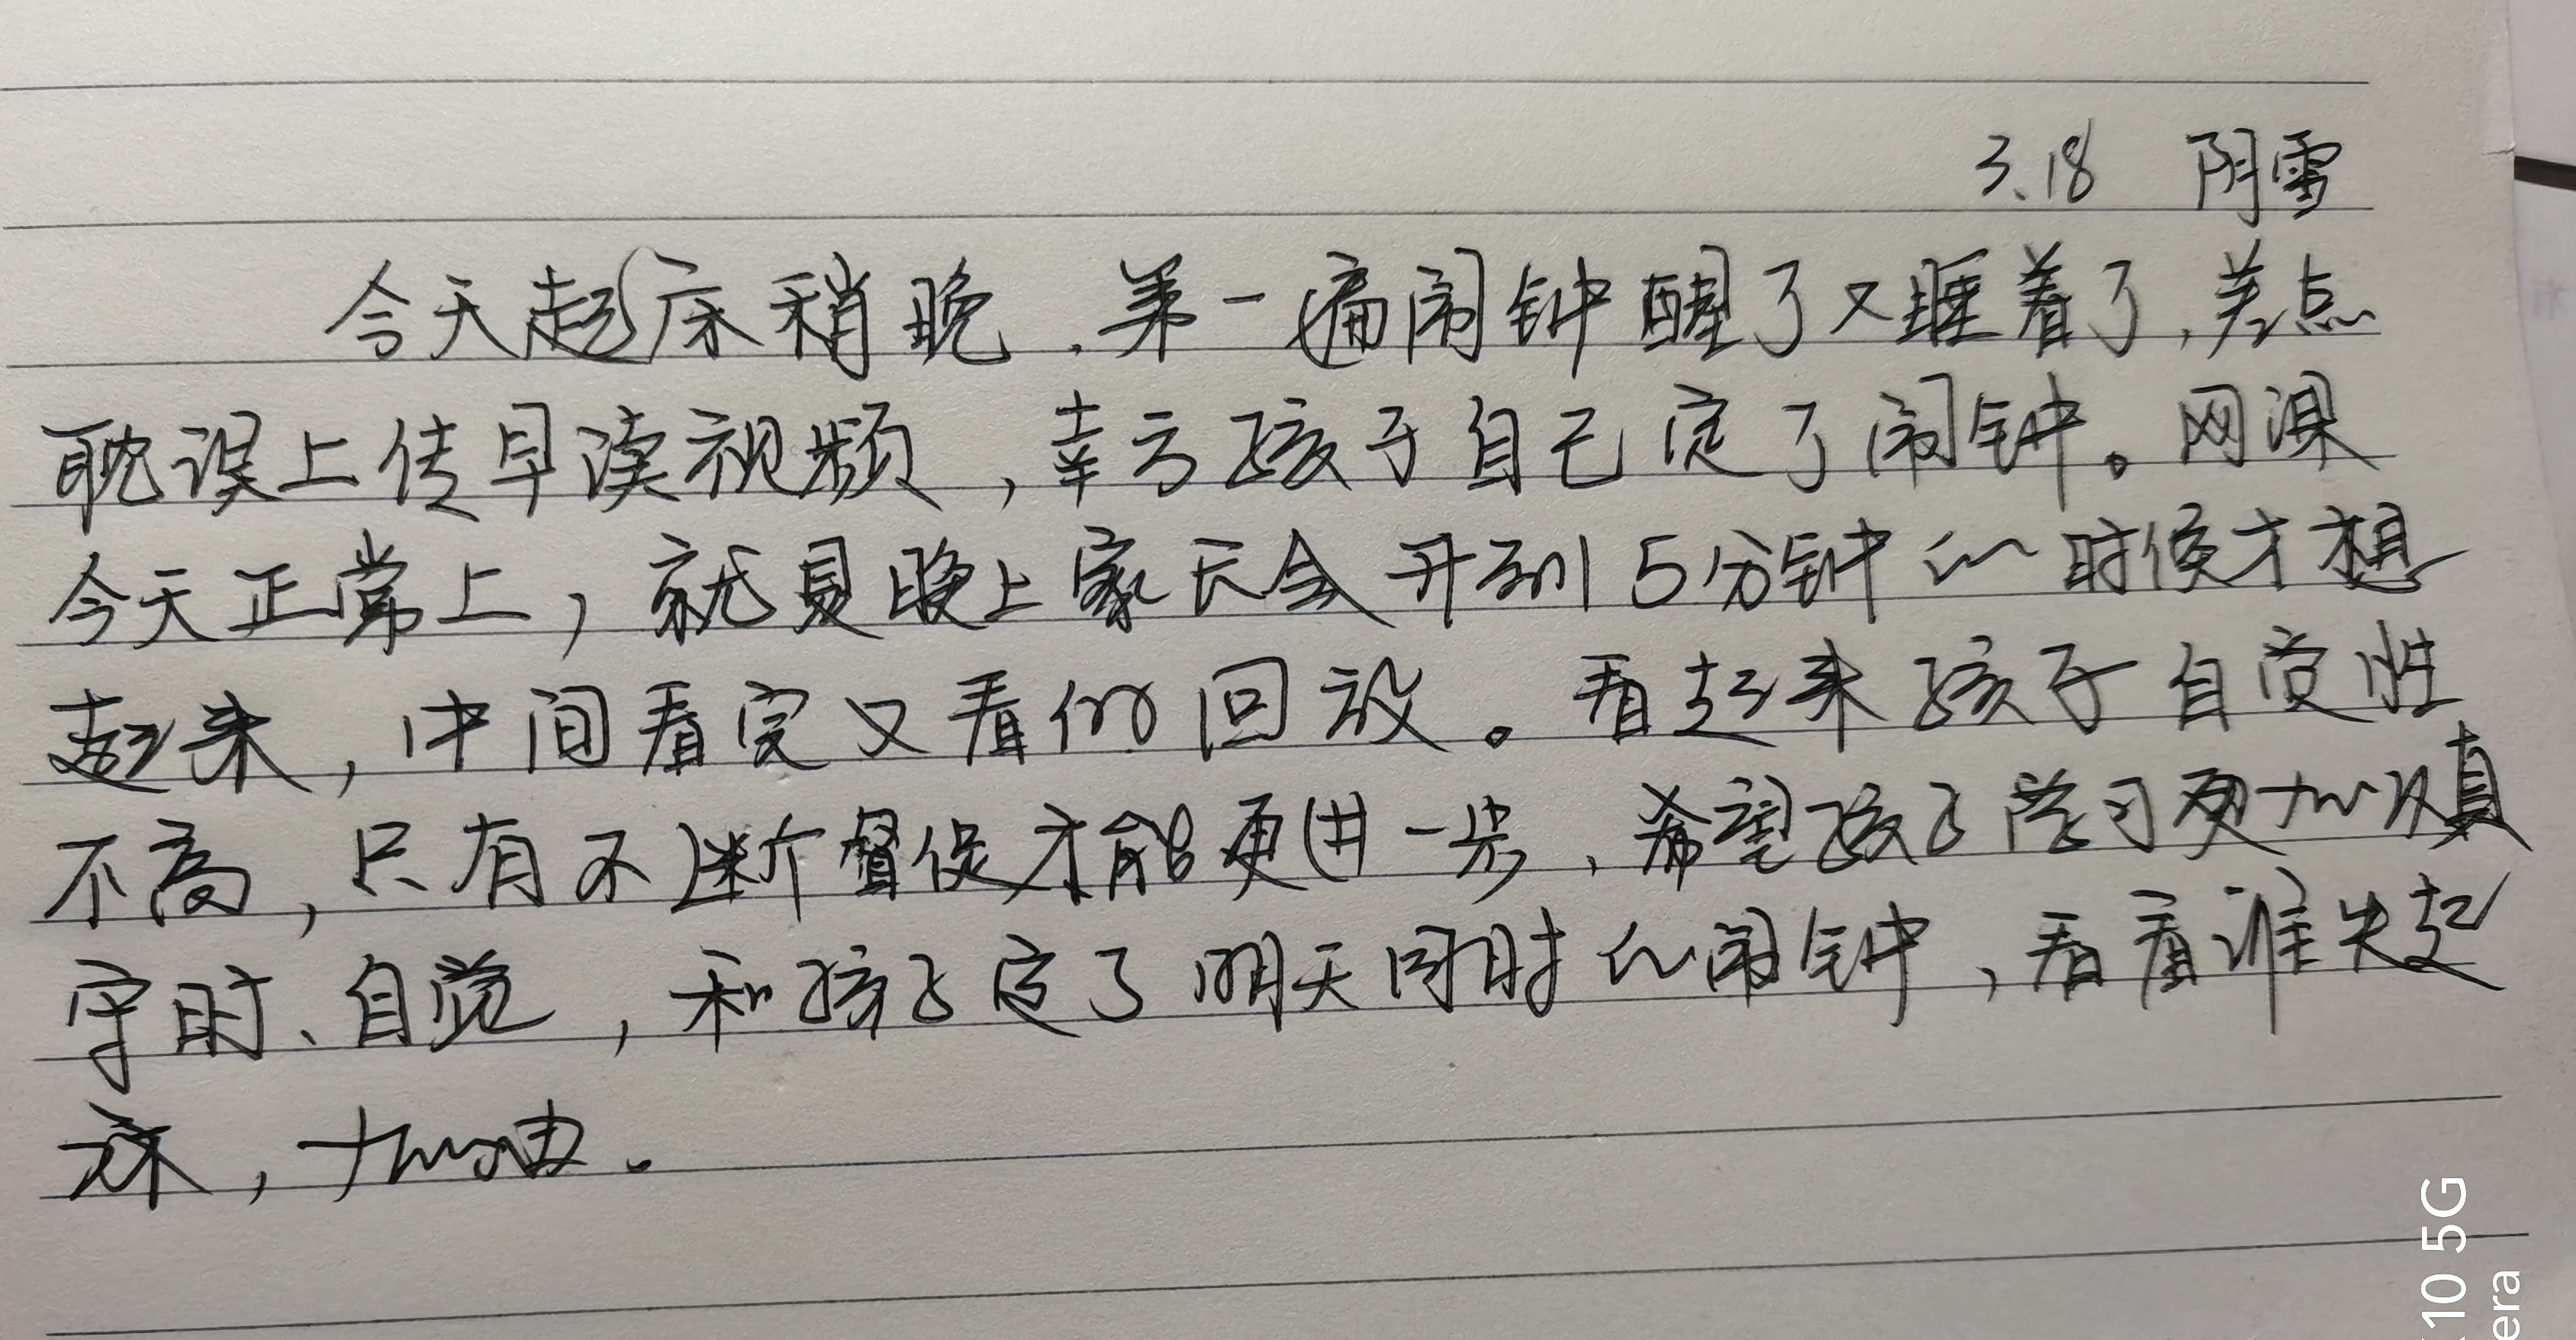 3.18 阴雪
今天起床稍晚.第一遍闹钟醒了又睡着了,差点
耽误上传早读视频,幸亏孩子自己定了闹钟。网课
今天正常上,就是晚上家长会开到5分钟的时候才想
起来,中间看完又看的回放。看起来孩子自觉性
不高,只有不断督促才能更进一步,希望孩子学习更加认真
守时、自觉,和孩子定了明天同时的闹钟,看看谁先起
床,加油.
10 5G
era